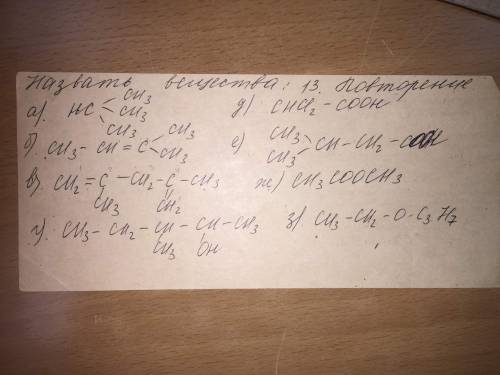 Назвать вещества: 13. Повторение
а). HC CH3 CH3 CH3
б) CH3 - CH = C CH3 CH3
в) CH2 = C - CH2 - C - CH3
CH3 CH2
г). CH3 - CH2 - CH - CH - CH3
CH3 OH
д) CHCl2 - COOH
е) CH3 CH3 CH - CH2 - COOH
ж) CH3COOCH3
з) CH3 - CH2 - O - C3H7